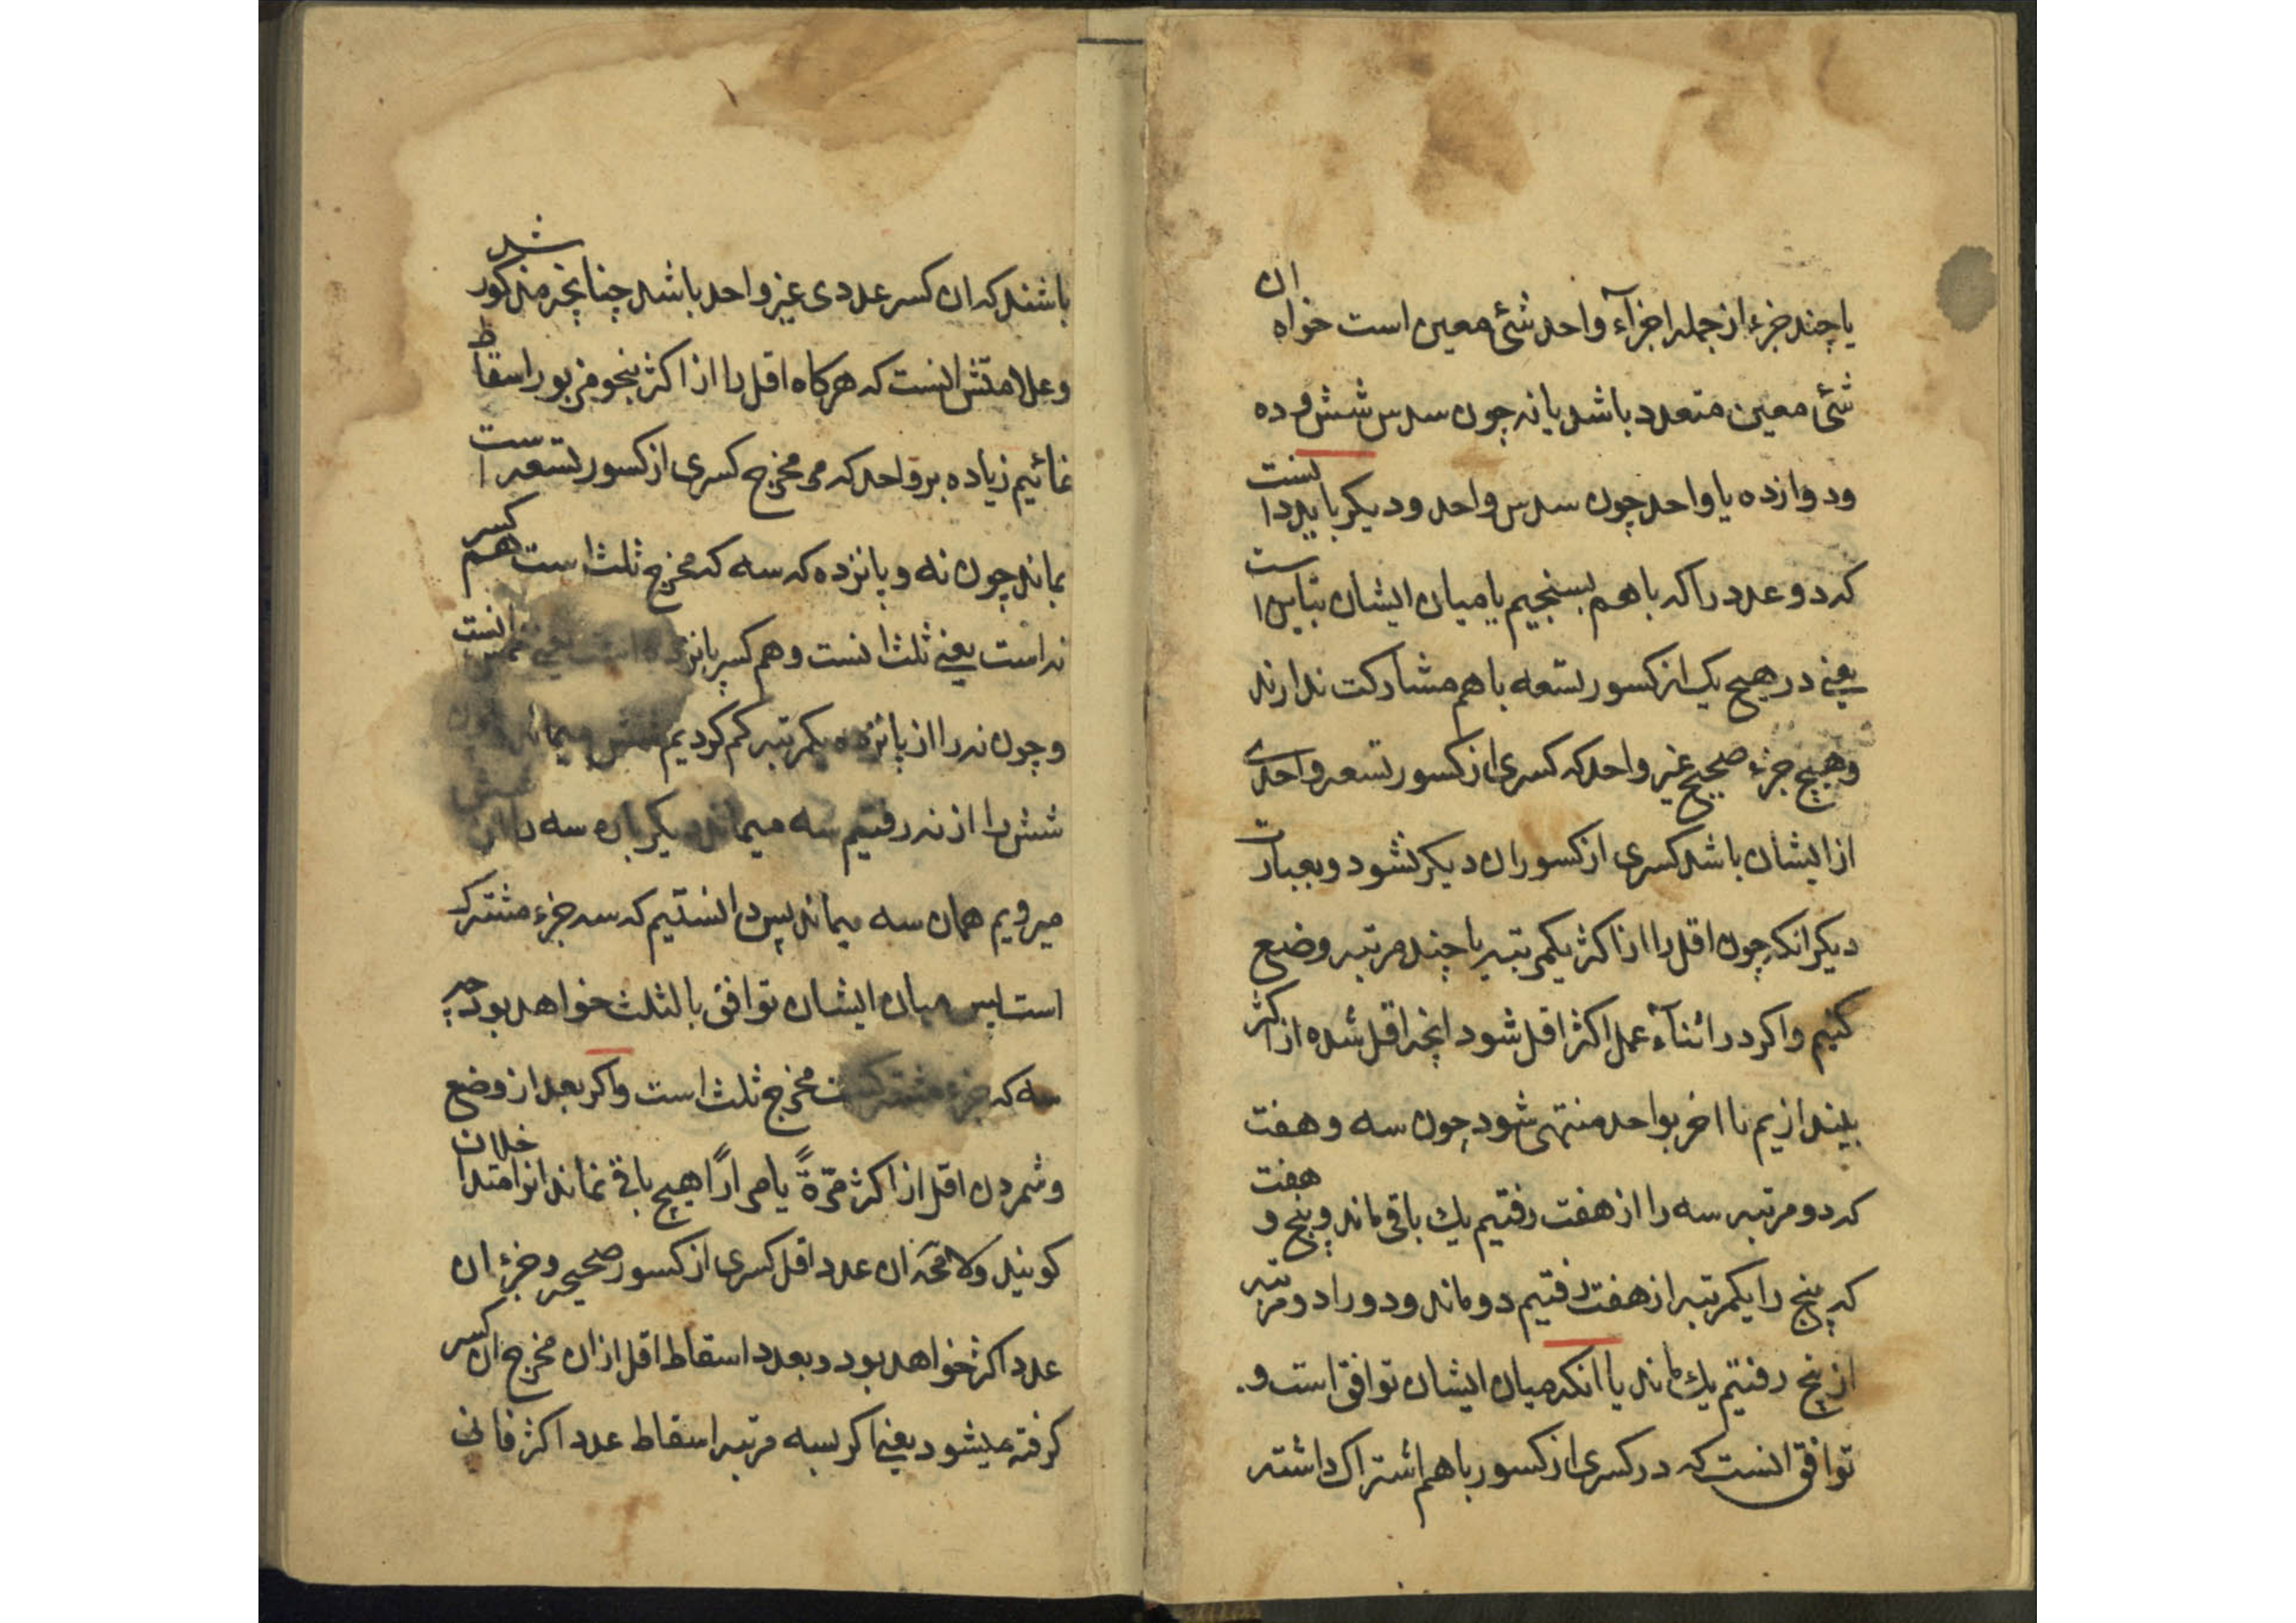 یا چند جزء از جمله اجزآء واحد شئ معین است خواه ان
شئ معین متعدد باشد یا نه چون سدس شش و ده
ودوازده یا واحد چون سدس واحد ودیکر باید دانست
که دو عدد را که باهم بسنجیم یا میان ایشان تباین است
یعنی در هیچ یک از کسور تسعه باهم مشارکت ندارند
وهیچ جزء صحیح غیر واحد که کسری از کسور تسعه واحدی
از ایشان باشد کسری از کسور ان دیکر نشود وبعبارت
دیکر انکه چون اقل را از اکثر یکمرتبه یا چند مرتبه وضع
کنیم واکر در اثنآء عمل اکثر اقل شود انچه اقل شده از اکثر
بیندازیم تا اخر بواحد منتهی شود چون سه و هفت
که دو مرتبه سه را از هفت رفتیم یك باقی ماند وپنج و هفت
که پنج را یکمرتبه از هفت رفتیم دو ماند ودو را دو مرتبه
از پنج رفتیم یك ماند یا انکه میان ایشان توافق است و
توافق انست که در کسری از کسور باهم اشتراك داشته
باشند که ان کسر عددی غیر واحد باشد چنانچه مذکور شد
وعلامتش انست که هرکاه اقل را از اکثر بنحو مزبور اسقاط
نمائیم زیاده بر واحد که مخرج کسری از کسور تسعه است
بماند چون نه و پانزده که سه که مخرج ثلث است هم کسر
نه است یعنی ثلث انست وهم کسر پانزده است یعنی خمس انست
وچون نه را از پانزده یکمرتبه کم کردیم شش میماند چون
شش را از نه رفتیم سه میماند دیکر باره سه را از شش
میرویم همان سه میماند پس دانستیم که سه جزء مشترك
است پس میان ایشان توافق بالثلث خواهد بود چه
سه که جزء مشترکست مخرج ثلث است واکر بعد از وضع
وشمردن اقل از اکثر مرّةً یا مرارًا هیچ باقی نماند انرا متداخلان
کویند ولا محّه ان عدد اقل کسری از کسور صحیحه وجزء ان
عدد اکثر خواهد بود وبعدد اسقاط اقل از ان مخرج ان کسر
کرفته میشود یعنی اکر بسه مرتبه اسقاط عدد اکثر فانی